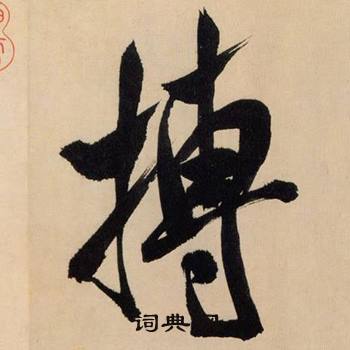 搏
词典网